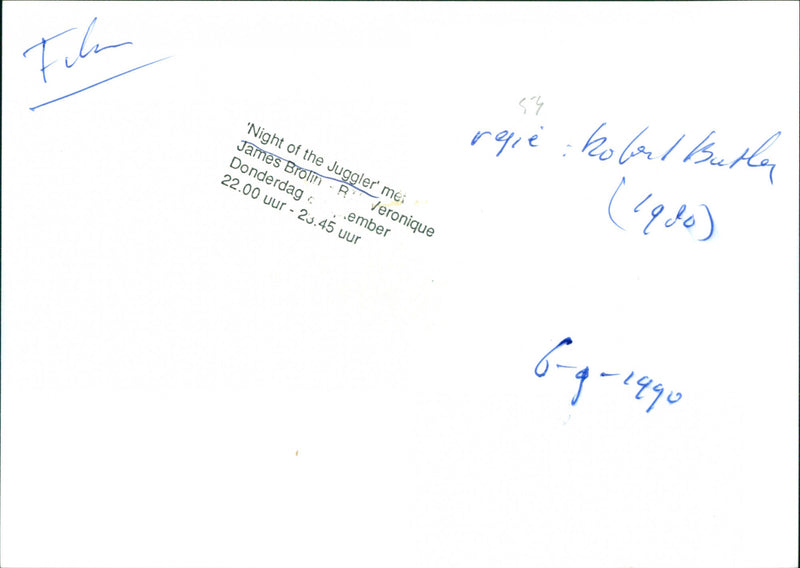 Film
'Night of the Juggler' met
James Brolin Veronique
Donderdag
22.00 uur - 23.45 uur
regie : Robert Butler
(1980)
6-9-1990